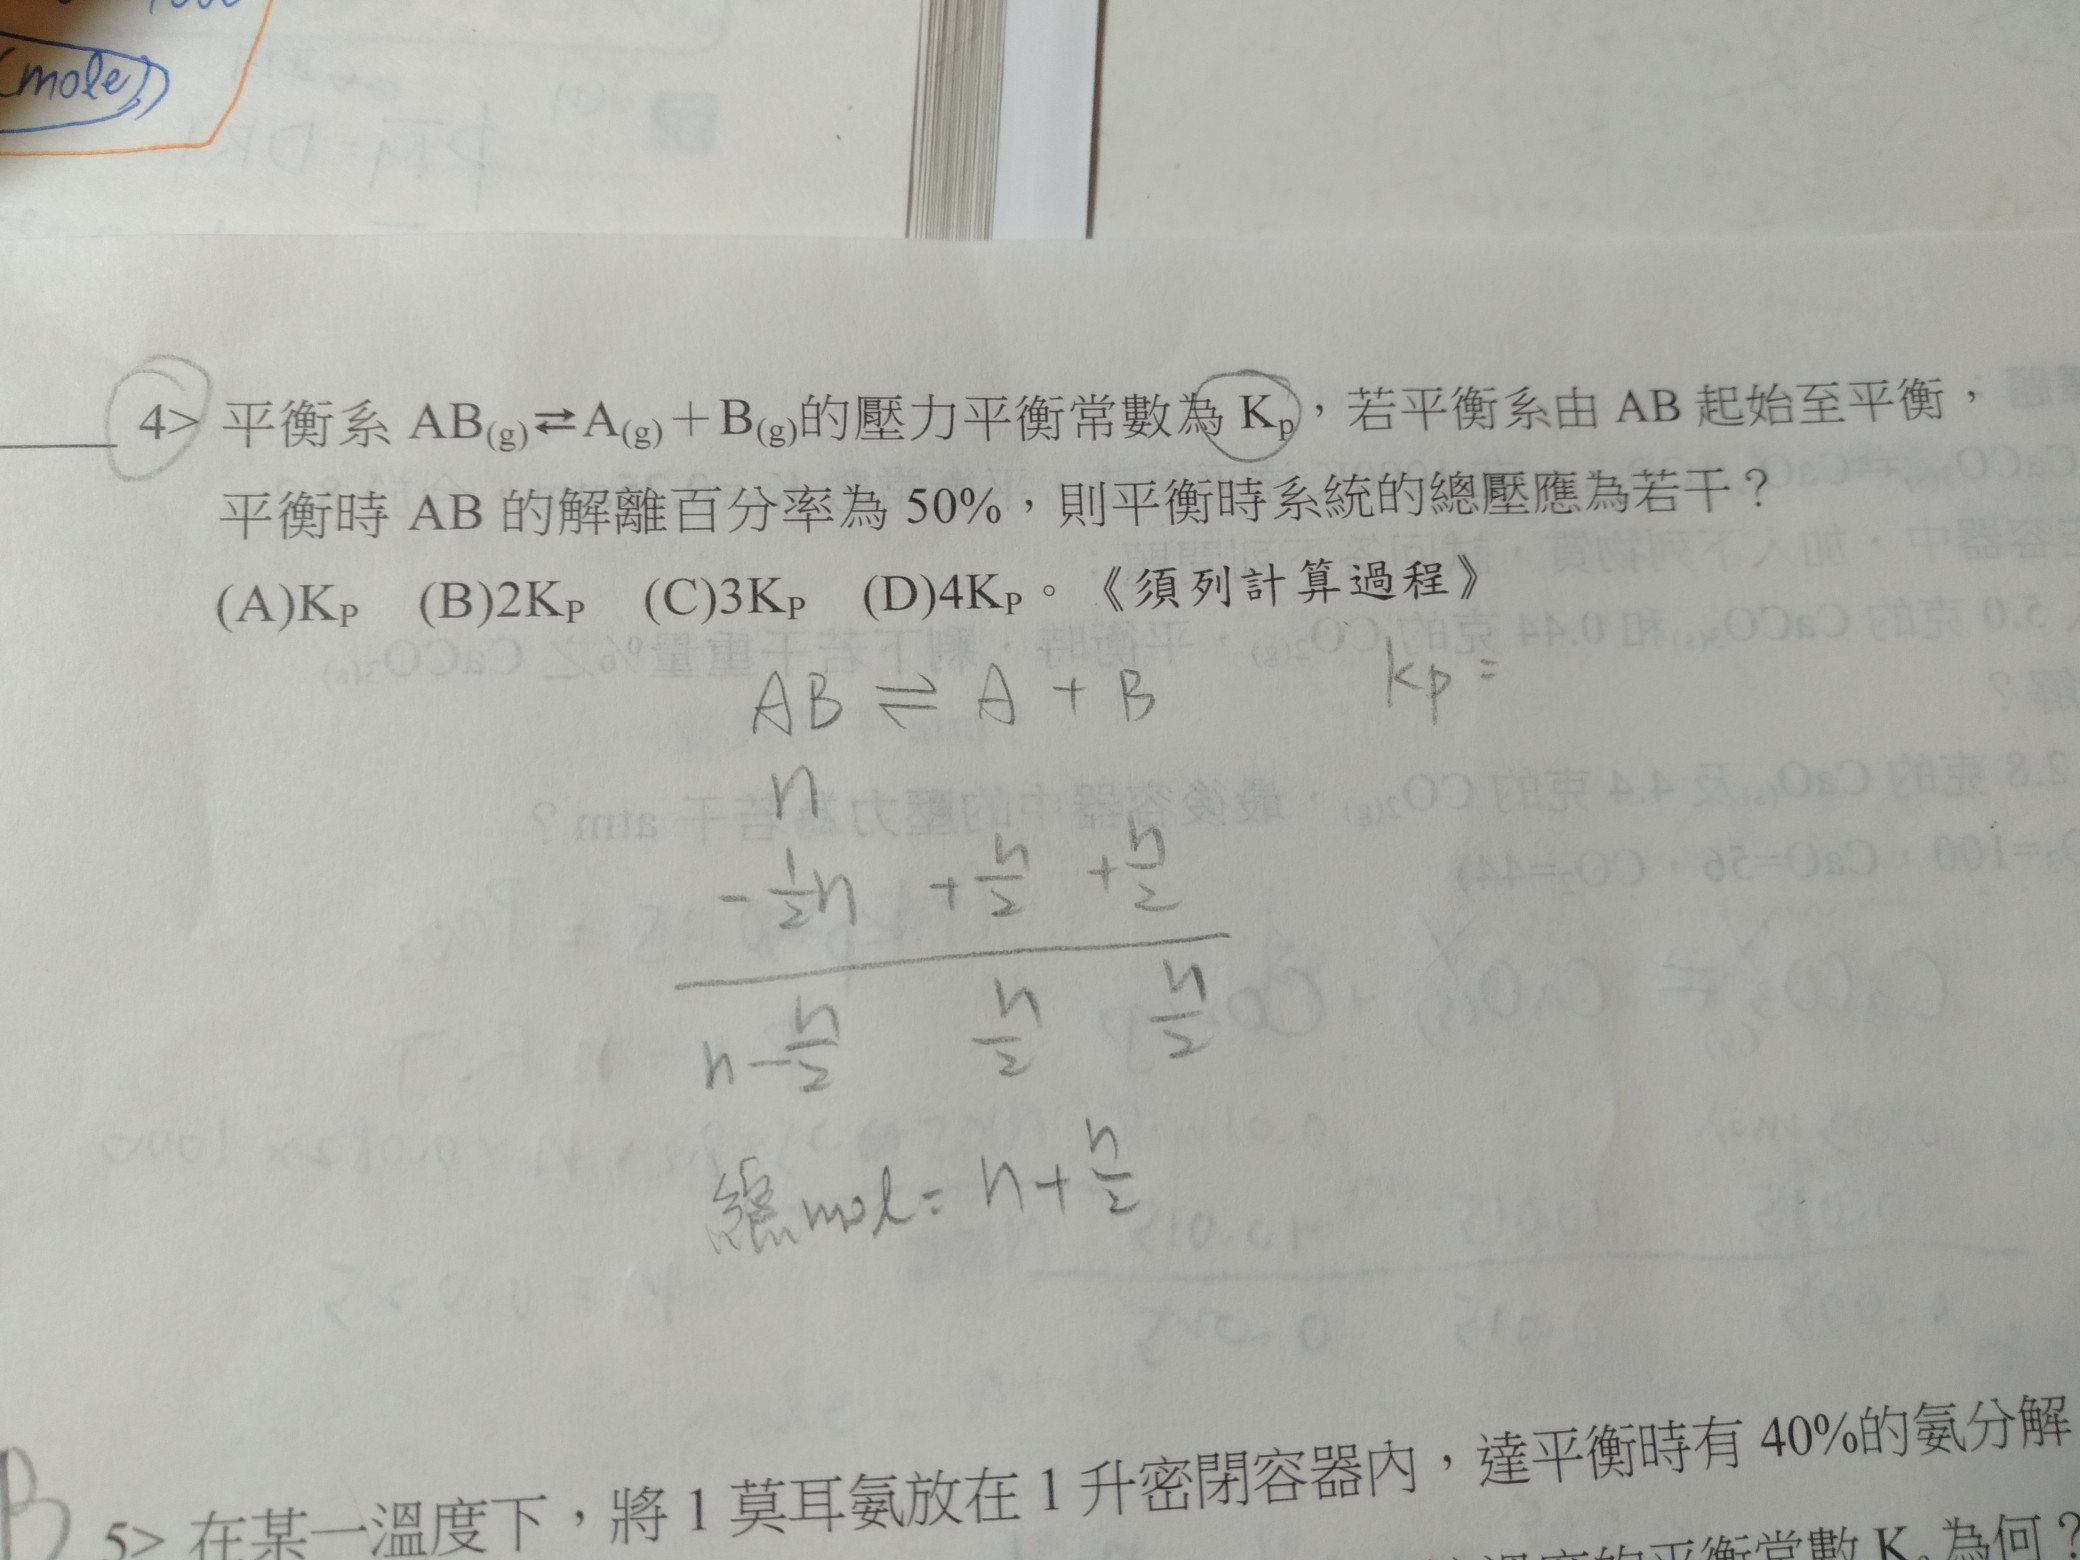 (mole)
4> 平衡系 AB(g)⇄A(g)＋B(g)的壓力平衡常數為 Kp，若平衡系由 AB 起始至平衡，
平衡時 AB 的解離百分率為 50%，則平衡時系統的總壓應為若干？
(A)KP (B)2KP (C)3KP (D)4KP。《須列計算過程》
AB ⇌ A + B kp =
n
- 1/2 n + n/2 + n/2
n - n/2 n/2 n/2
總mol = n + n/2
B 5> 在某一溫度下，將 1 莫耳氨放在 1 升密閉容器內，達平衡時有 40%的氨分解
平衡常數 Kc 為何？